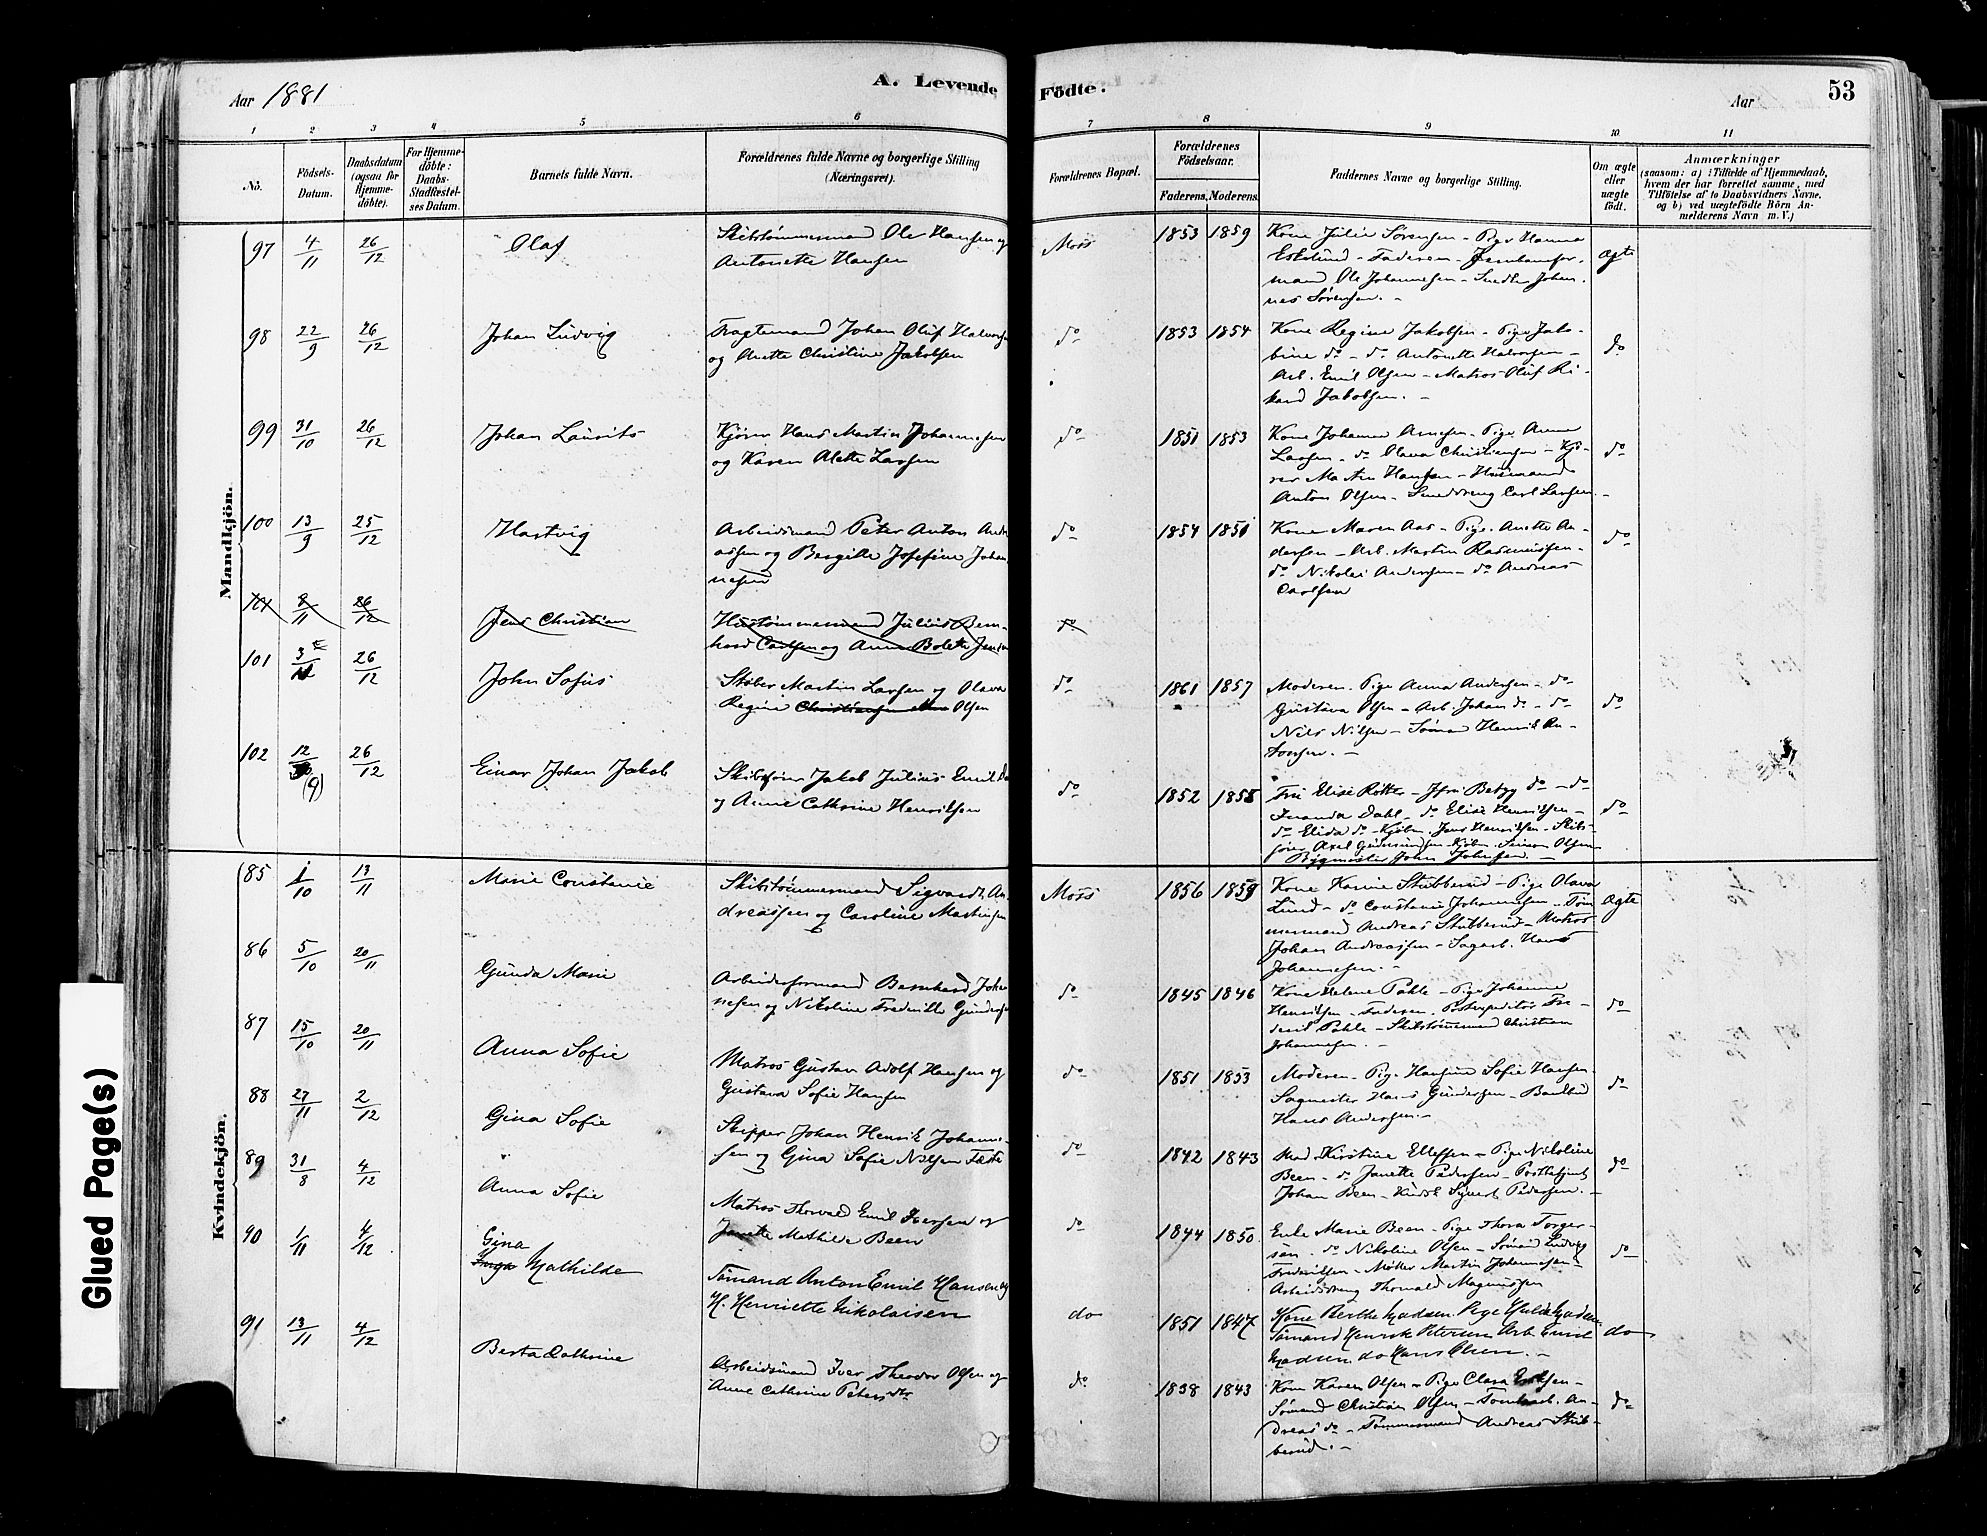 Aar 1881
A. Levende Födte.
Aar
53
1 2 3 4 5 6 7 8 9 10. 11
No.
Födsels-
Datum.
Daabsdatum
(ogsaa for
Hjemme-
döbte).
For Hjemme-
döbte:
Daabs-
Stadfæstel-
ses Datum.
Barnets fulde Navn.
Forældrenes fulde Navne og borgerlige Stilling
(Næringsvei).
Forældrenes Bopæl.
Forældrenes
Födselsaar.
Faderens. Moderens.
Faddernes Navne og borgerlige Stilling.
Om ægte
eller
uægte
födt.
Anmærkninger
(saasom: a) i Tilfælde af Hjemmedaab,
hvem der har forrettet samme, med
Tilföielse af to Daabsvidners Navne,
og b) ved uægtefödte Börn An-
melderens Navn m. V.)
Mandkjön.
97 4/11 26/12 Olaf
Skibstømmermand Ole Hansen og
Antonette Hansen
Moss 1853 1859
Kone Julie Sørensen - Pige Hanna
Eskelund - Faderen - Jernbanefor-
mand Ole Johannesen - Smed Johan-
nes Sørensen. -
ægte
98 22/9 26/12 Johan Ludvig
Fragtemand Johan Oluf Halvorsen
og Anette Christine Jakobsen
do 1853 1854
Kone Regine Jakobsen - Pige Jako-
bine do - do Antonette Halvorsen -
Arb. Emil Olsen - Matros Oluf Ri-
kard Jakobsen. -
do
99 31/10 26/12 Johan Laurits
Kjører Hans Martin Johannesen
og Karen Alette Larsen
do 1851 1853
Kone Johanne Arnesen - Pige Anne
Larsen - do Olava Christensen - Kjø-
rer Martin Hansen - Husmand
Anton Olsen - Smeddreng Carl Larsen. -
do
100 13/9 25/12 Hartvig
Arbeidsmand Peter Anton Andre-
assen og Bergitte Josefine Johan-
nesen
do 1854 1850
Kone Maren Aas - Pige Anette An-
dersen - Arb. Martin Rasmussen -
do Nikolai Andersen - do Andreas
Carlsen
do
101 8/11 26/12 Jens Christian
Hustømmermand Julius Bern-
hard Carlsen og Anne Bolette Jensen
do
101 3/12 26/12 John Sofus
Støber Martin Larsen og Olava
Regine Christiansen Olsen
do 1861 1857
Moderen. Pige Anna Andersen - do
Gustava Olsen - Arb. Johan do - do
Nils Nilsen - Sømand Henrik An-
tonsen. -
do
102 12/(9) 26/12 Einar Johan Jakob
Skibsfører Jakob Julius Emil
og Anne Cathrine Henriksen
do 1852 1858
Fru Elise Røtter - Jfru Betzy do - do
Inanda Dahl - do Elise Henriksen -
do Elida do - Kjøbm. Jens Henriksen - Skibs-
fører Axel Gudmundsen - Kjøbm. Simon Olsen
Bygmester John Johnsen. -
do
Kvindekjön.
85 1/10 13/11 Marie Constanse
Skibstømmermand Sigvardt An-
dreassen og Caroline Martinsen
Moss 1856 1859
Kone Karine Stubberud - Pige Olava
Lund - do Constanse Johannesen - Tøm-
mermand Andreas Stubberud - Matros
Johan Andreassen - Sagarb. Hans
Johannesen. -
ægte
86 5/10 20/11 Gunda Marie
Arbeidsformand Bernhard Johan-
nesen og Nikoline Fredrikke Gundersen
do 1845 1846
Kone Helene Pahle - Pige Johanne
Henriksen - Faderen. Postexpeditør Fre-
derik Pahle - Skibstømmermand Christian
Johannesen. -
do
87 15/10 20/11 Anna Sofie
Matros Gustav Adolf Hansen og
Gustava Sofie Hansen
do 1851 1853
Moderen - Pige Hansine Sofie Hansen.
Sagmester Hans Gundersen - Baadbud
Hans Andersen. -
do
88 27/11 2/12 Gina Sofie
Skipper Johan Henrik Johanne-
sen og Gina Sofie Nilsen Tæste
do 1842 1843
Mad. Kirstine Ellefsen - Pige Nikoline
Been - do Janette Pedersen - Posttjent
Johan Been - Sivert Pedersen. -
do
89 31/8 4/12 Anna Sofie
Matros Thorvald Emil Iversen og
Janette Mathilde Been
do 1844 1850
Enke Marie Been - Pige Thora Torger-
sen. do Nikoline Olsen - Sømand Ludvig
Fredriksen - Møller Martin Johannesen -
Arbeidsdreng Thorvald Magnussen
do
90 1/11 4/12 Gina
Inga Mathilde
Sømand Anton Emil Hansen og
H. Henriette Nikolaisen
do 1851 1847
Kone Berthe Madsen. Pige Hulda Madsen.
Sømand Henrik Petersen Arb. Emil
Madsen. do Hans Olsen. -
do
91 13/11 4/12 Berta Cathrine
Arbeidsmand Iver Theodor Olsen og
Anne Cathrine Petersdtr
do 1838 1843
Kone Karen Olsen - Pige Clara Eriksen -
Sømand Christian Olsen - Tømbarb. An-
dreas do - Tømmermand Andreas Stub-
berud. -
do
Glued Page(s)